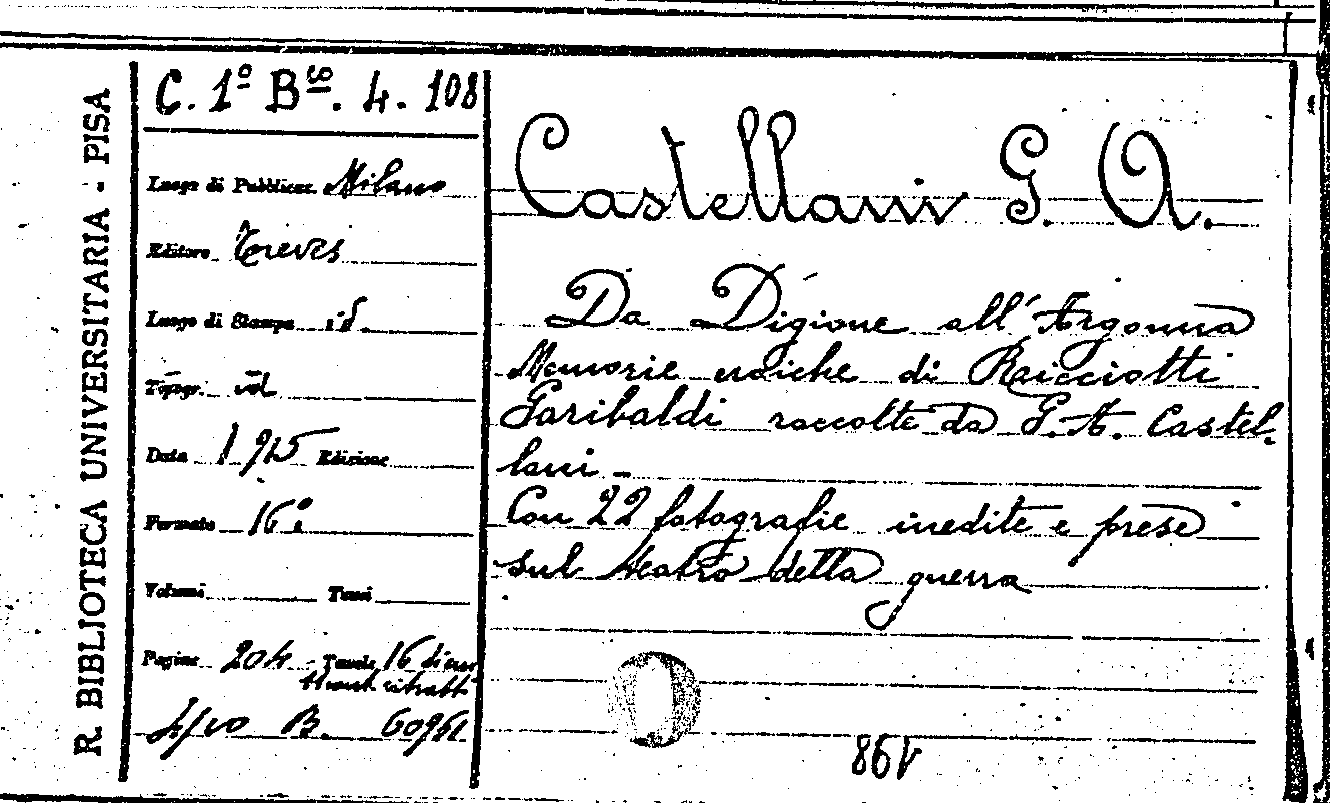 R. BIBLIOTECA UNIVERSITARIA - PISA
C. 1º Bis. 4. 108
Luogo di Pubblicaz. Milano
Editore Treves
Luogo di Stampa id.
Topogr. id
Data 1915 Edizione
Formato 16º
Volumi Tomi
Pagine 204 Tavole 16 di cui
ritratti
B. 60961
Castellani G. A.
Da Digione all'Argonna
Memorie eroiche di Ricciotti
Garibaldi raccolte da G. A. Castel-
lani -
Con 22 fotografie inedite e prese
sul teatro della guerra